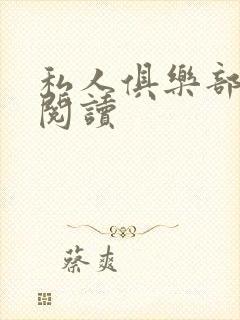 私人俱樂部
閱讀
蔡爽